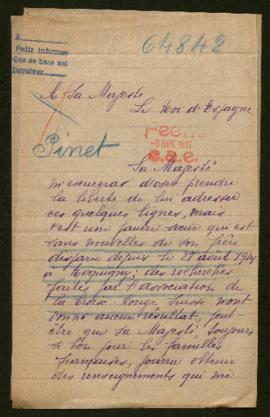 A
Petit informes
que se hace así
Devolver
64842
A Sa Majesté
Le Roi d'Espagne
-5 NOV. 1917
Pinet
Sa Majesté
m'excusera d'oser prendre
la liberté de lui adresser
ces quelques lignes, mais
c'est une pauvre sœur qui est
sans nouvelles de son frère
disparu depuis le 28 août 1914
à ; des recherches
faites par l'association de
la Croix Rouge Suisse n'ont
donné aucun résultat, peut-
être que Sa Majesté toujours
si bon pour les familles
françaises, pourra obtenir
des renseignements qui me